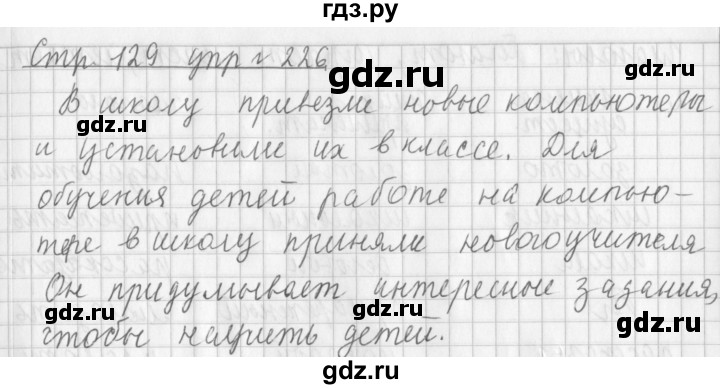 гдз.ру
Стр. 129 упр. 226
gdz.ru
В школу привезли новые компьютеры
gdz.ru
gdz.ru
и установили их в классе. Для
gdz.ru
обучения детей работе на компью-
тере в школу приняли нового учителя
gdz.ru
gdz.ru
Он придумывает интересные задания,
gdz.ru
gdz.ru
чтобы научить детей.
gdz.ru